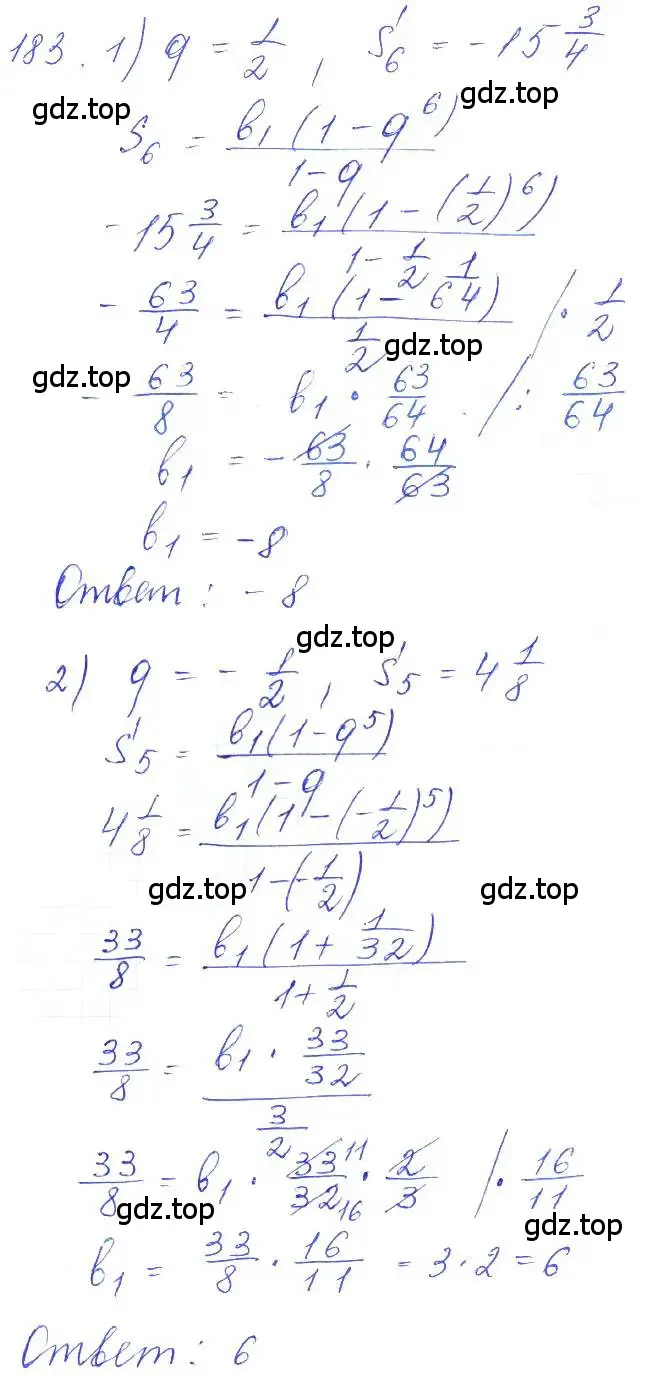 183. 1) q = 1/2, S₆ = -15 3/4
gdz.top gdz.top
S₆ = b₁(1-q⁶)/(1-q)
-15 3/4 = b₁(1-(1/2)⁶)/(1-1/2)
-63/4 = b₁(1-1/64)/(1/2) /· 1/2
gdz.top gdz.top
-63/8 = b₁ · 63/64 /: 63/64
b₁ = -63/8 · 64/63
b₁ = -8
Ответ: -8
gdz.top
2) q = -1/2, S₅ = 4 1/8
S₅ = b₁(1-q⁵)/(1-q)
4 1/8 = b₁(1-(-1/2)⁵)/(1-(-1/2))
gdz.top gdz.top
33/8 = b₁(1+1/32)/(1+1/2)
33/8 = (b₁ · 33/32)/(3/2)
33/8 = b₁ · 33 11/32 16 · 2/3 /· 16/11
gdz.top gdz.top
b₁ = 33/8 · 16/11 = 3·2 = 6
Ответ: 6